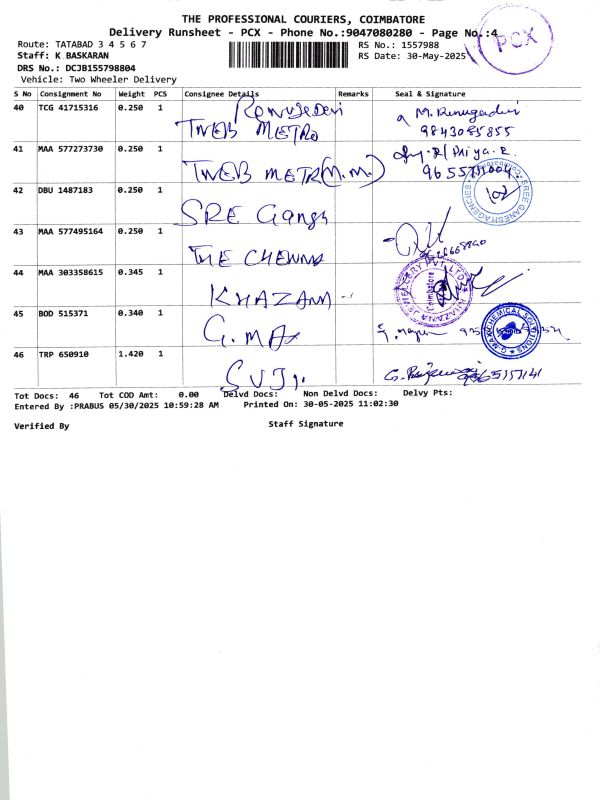 THE PROFESSIONAL COURIERS, COIMBATORE
Delivery Runsheet - PCX - Phone No.:9047080280 - Page No.:4
PCX
Route: TATABAD 3 4 5 6 7
RS No.: 1557988
Staff: K BASKARAN
RS Date: 30-May-2025
DRS No.: DCJB155798804
Vehicle: Two Wheeler Delivery
S No Consignment No Weight PCS Consignee Details Remarks Seal & Signature
40 TCG 41715316 0.250 1
TNEB METRO
9843085855
41 MAA 577273730 0.250 1
TNEB METR(M.M.)
42 DBU 1487183 0.250 1
SRE Gangs
SREE GANESH AGENCIES
43 MAA 577495164 0.250 1
THE CHENNA
44 MAA 303358615 0.345 1
KHAZANA
KHAZANA JEWELLERY PVT. LTD.
Coimbatore
45 BOD 515371 0.340 1
G.MAX
G-MAX CHEMICAL SOLUTIONS
46 TRP 650910 1.420 1
Tot Docs: 46 Tot COD Amt: 0.00 Delvd Docs: Non Delvd Docs: Delvy Pts:
Entered By :PRABUS 05/30/2025 10:59:28 AM Printed On: 30-05-2025 11:02:30
Verified By Staff Signature